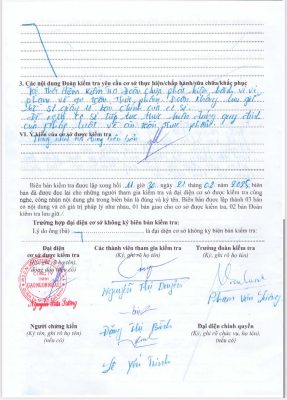 3. Các nội dung Đoàn kiểm tra yêu cầu cơ sở thực hiện/chấp hành/sửa chữa/khắc phục
Tại thời điểm kiểm tra Đoàn chưa phát hiện hành vi vi
phạm về an toàn thực phẩm. Đoàn không lưu giữ
giấy tờ bản chính của cơ sở.
Đề nghị cơ sở tiếp tục thực hiện đúng quy định
của pháp luật về an toàn thực phẩm.
VI. Ý kiến của cơ sở được kiểm tra
Thống nhất nội dung biên bản
Biên bản kiểm tra được lập xong hồi 11 giờ 30, ngày 21 tháng 02 2025, biên
bản đã được đọc lại cho những người tham gia kiểm tra, đại diện cơ sở được kiểm tra cùng
nghe, công nhận nội dung ghi trong biên bản là đúng và ký tên. Biên bản được lập thành 03 bản
có nội dung và có giá trị pháp lý như nhau, 01 bản giao cho cơ sở được kiểm tra, 02 bản Đoàn
kiểm tra lưu giữ./.
Trường hợp đại diện cơ sở không ký biên bản kiểm tra:
Lý do ông (bà) là đại diện cơ sở không ký biên bản kiểm tra:
Đại diện
cơ sở được kiểm tra
Các thành viên tham gia kiểm tra
(Ký, ghi rõ họ tên)
Trưởng đoàn kiểm tra
(Ký, ghi rõ họ tên)
Nguyễn Thị Duyên
Đặng Thị Bích
Người chứng kiến
(Ký tên, ghi rõ họ tên)
(nếu có)
Đại diện chính quyền
(Ký, ghi rõ chức vụ, họ tên),
(nếu có)